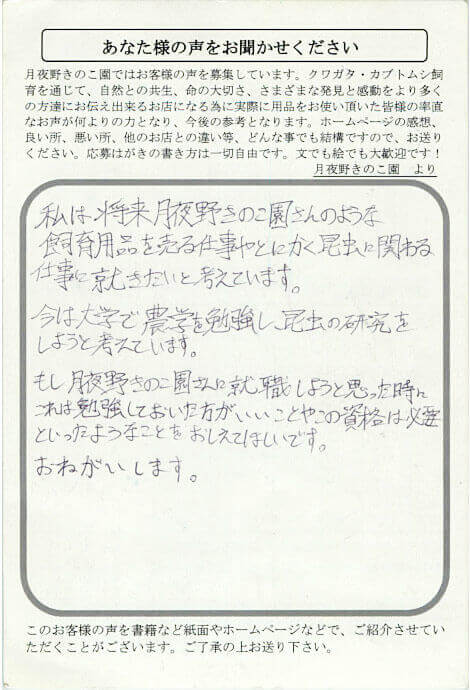 あなた様の声をお聞かせください
月夜野きのこ園ではお客様の声を募集しています。クワガタ・カブトムシ飼
育を通じて、自然との共生、命の大切さ、さまざまな発見と感動をより多く
の方達にお伝え出来るお店になる為に実際に用品をお使い頂いた皆様の率直
なお声が何よりの力となり、今後の参考となります。ホームページの感想、
良い所、悪い所、他のお店との違い等、どんな事でも結構ですので、お送り
ください。応募はがきの書き方は一切自由です。文でも絵でも大歓迎です！
月夜野きのこ園　より
私は、将来月夜野きのこ園さんのような
飼育用品を売る仕事やとにかく昆虫に関わる
仕事に就きたいと考えています。
今は大学で農学を勉強し、昆虫の研究を
しようと考えています。
もし月夜野きのこ園さんに就職しようと思った時に
これは勉強しておいた方がいいことやこの資格は必要
といったようなことをおしえてほしいです。
おねがいします。
このお客様の声を書籍など紙面やホームページなどで、ご紹介させてい
ただくことがございます。ご了承の上お送り下さい。